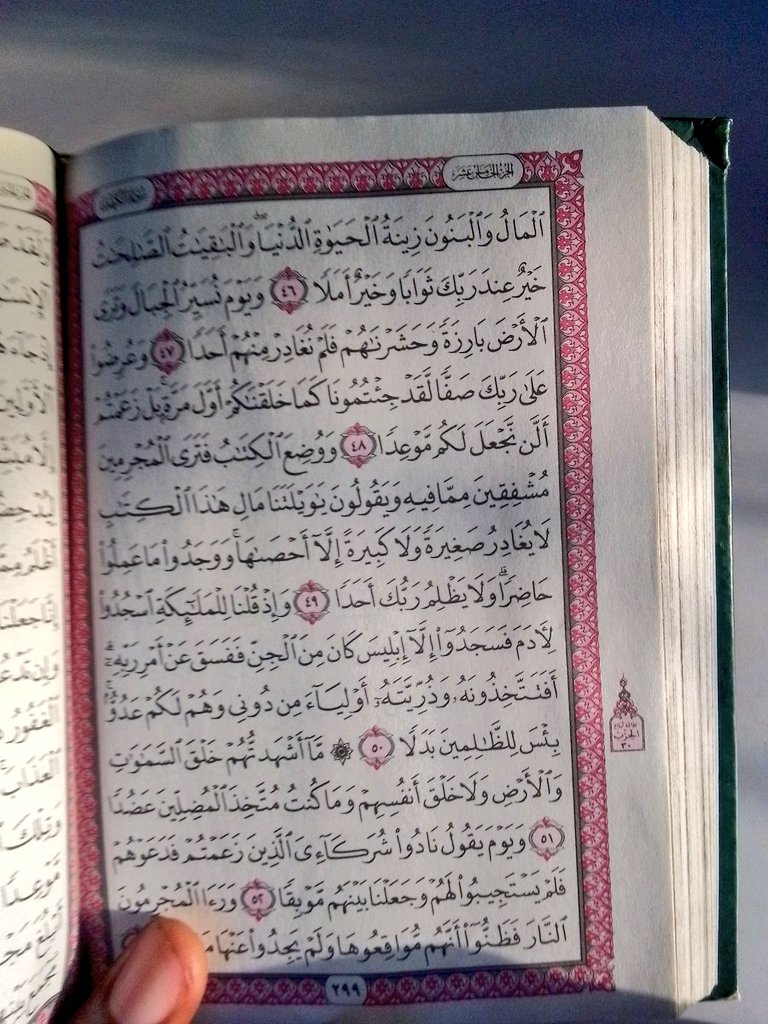 الجزء الخامس عشر
سورة الكهف
ٱلْمَالُ وَٱلْبَنُونَ زِينَةُ ٱلْحَيَوٰةِ ٱلدُّنْيَا ۖ وَٱلْبَٰقِيَٰتُ ٱلصَّٰلِحَٰتُ
خَيْرٌ عِندَ رَبِّكَ ثَوَابًا وَخَيْرٌ أَمَلًا ٤٦ وَيَوْمَ نُسَيِّرُ ٱلْجِبَالَ وَتَرَى
ٱلْأَرْضَ بَارِزَةً وَحَشَرْنَٰهُمْ فَلَمْ نُغَادِرْ مِنْهُمْ أَحَدًا ٤٧ وَعُرِضُوا۟
عَلَىٰ رَبِّكَ صَفًّا لَّقَدْ جِئْتُمُونَا كَمَا خَلَقْنَٰكُمْ أَوَّلَ مَرَّةٍۭ ۚ بَلْ زَعَمْتُمْ
أَلَّن نَّجْعَلَ لَكُم مَّوْعِدًا ٤٨ وَوُضِعَ ٱلْكِتَٰبُ فَتَرَى ٱلْمُجْرِمِينَ
مُشْفِقِينَ مِمَّا فِيهِ وَيَقُولُونَ يَٰوَيْلَتَنَا مَالِ هَٰذَا ٱلْكِتَٰبِ
لَا يُغَادِرُ صَغِيرَةً وَلَا كَبِيرَةً إِلَّآ أَحْصَىٰهَا ۚ وَوَجَدُوا۟ مَا عَمِلُوا۟
حَاضِرًا ۗ وَلَا يَظْلِمُ رَبُّكَ أَحَدًا ٤٩ وَإِذْ قُلْنَا لِلْمَلَٰٓئِكَةِ ٱسْجُدُوا۟
لِءَادَمَ فَسَجَدُوٓا۟ إِلَّآ إِبْلِيسَ كَانَ مِنَ ٱلْجِنِّ فَفَسَقَ عَنْ أَمْرِ رَبِّهِۦٓ ۗ
أَفَتَتَّخِذُونَهُۥ وَذُرِّيَّتَهُۥٓ أَوْلِيَآءَ مِن دُونِى وَهُمْ لَكُمْ عَدُوٌّۢ ۚ
بِئْسَ لِلظَّٰلِمِينَ بَدَلًا ٥٠ ۞ مَّآ أَشْهَدتُّهُمْ خَلْقَ ٱلسَّمَٰوَٰتِ
وَٱلْأَرْضِ وَلَا خَلْقَ أَنفُسِهِمْ وَمَا كُنتُ مُتَّخِذَ ٱلْمُضِلِّينَ عَضُدًا
٥١ وَيَوْمَ يَقُولُ نَادُوا۟ شُرَكَآءِىَ ٱلَّذِينَ زَعَمْتُمْ فَدَعَوْهُمْ
فَلَمْ يَسْتَجِيبُوا۟ لَهُمْ وَجَعَلْنَا بَيْنَهُم مَّوْبِقًا ٥٢ وَرَءَا ٱلْمُجْرِمُونَ
ٱلنَّارَ فَظَنُّوٓا۟ أَنَّهُم مُّوَاقِعُوهَا وَلَمْ يَجِدُوا۟ عَنْهَا
الحزب
٣٠
٢٩٩